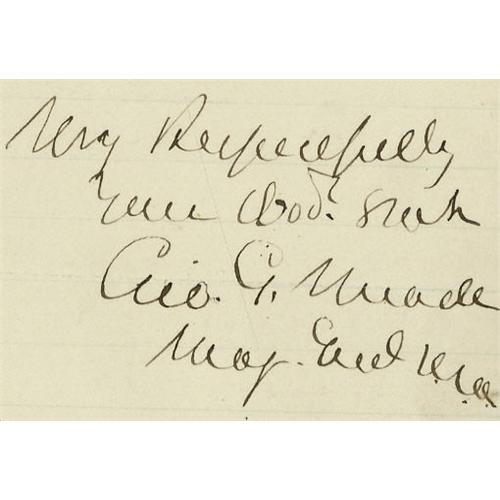 Very Respectfully
Your Obd. Servt
Geo. G. Meade
Maj. Genl U.S.A.